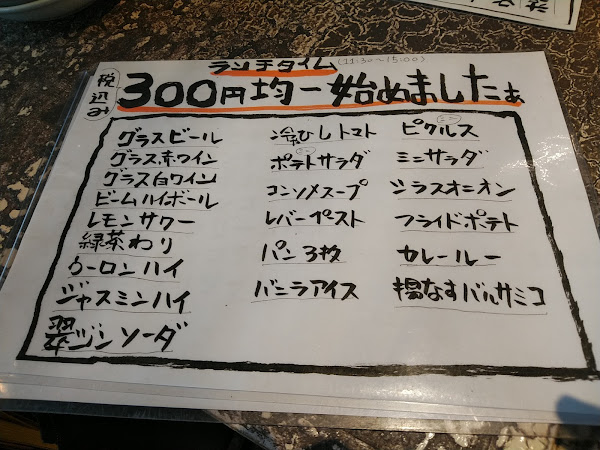 ランチタイム(11:30〜15:00)
税込み
300円均一始めましたぁ
グラスビール
グラス赤ワイン
グラス白ワイン
ビームハイボール
レモンサワー
緑茶わり
ウーロンハイ
ジャスミンハイ
翠ジンソーダ
冷ひしトマト
ポテトサラダ
コンソメスープ
レバーペースト
パン3枚
バニラアイス
ピクルス
ミニサラダ
シラスオニオン
フライドポテト
カレールー
揚なすバルサミコ